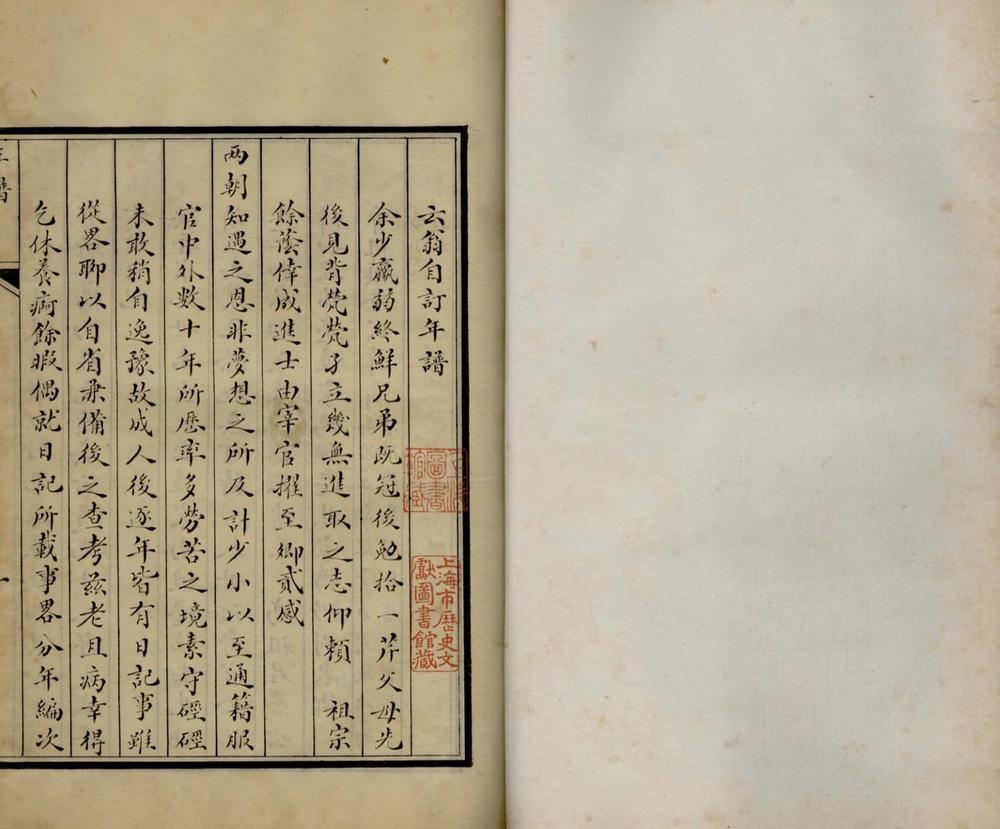 云翁自訂年譜
余少羸弱終鮮兄弟既冠後勉拾一芹父母先
後見背煢煢孑立幾無進取之志仰賴　祖宗
餘蔭倖成進士由宰官擢至卿貳感
两朝知遇之恩非夢想之所及計少小以至通籍服
官中外数十年所歷率多勞苦之境素守硜硜
未敢稍自逸豫故成人後逐年皆有日記事雖
從畧聊以自省兼備後之查考茲老且病幸得
乞休養疴餘暇偶就日記所載事畧分年編次
年譜
一
上海市歷史文
獻圖書館藏